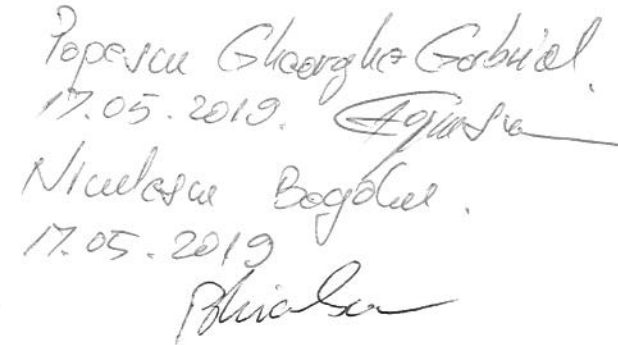 Popescu Gheorghe Gabriel.
17.05.2019.
Niculescu Bogdan.
17.05.2019